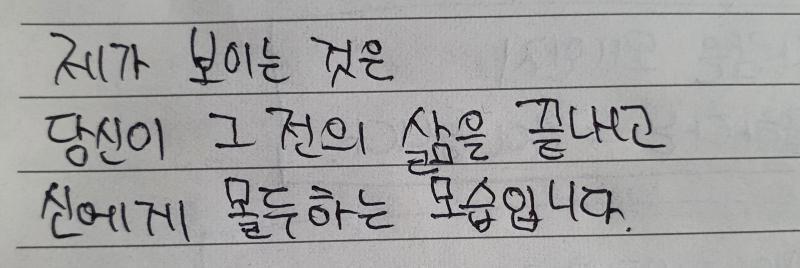 제가 보이는 것은
당신이 그 전의 삶을 끝내고
신에게 몰두하는 모습입니다.